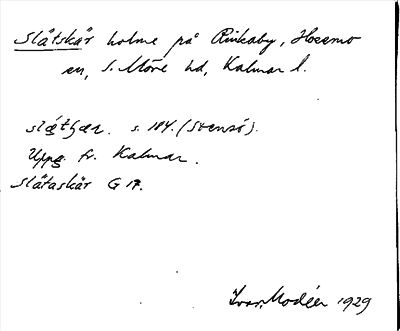 Slätskär holme på Rinkaby, Hossmo
sn, S. Möre hd, Kalmar l.
slätʃær. s. 184. (Svensö).
Uppg. fr. Kalmar.
Slätaskär G 17.
Ivar Modéer 1929